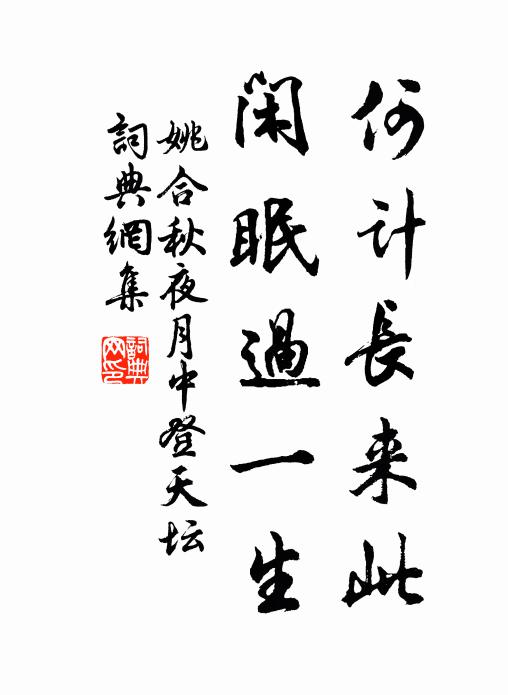 何计長来此
闲眠過一生
姚合秋夜月中登天坛
詞典網集
詞典网印